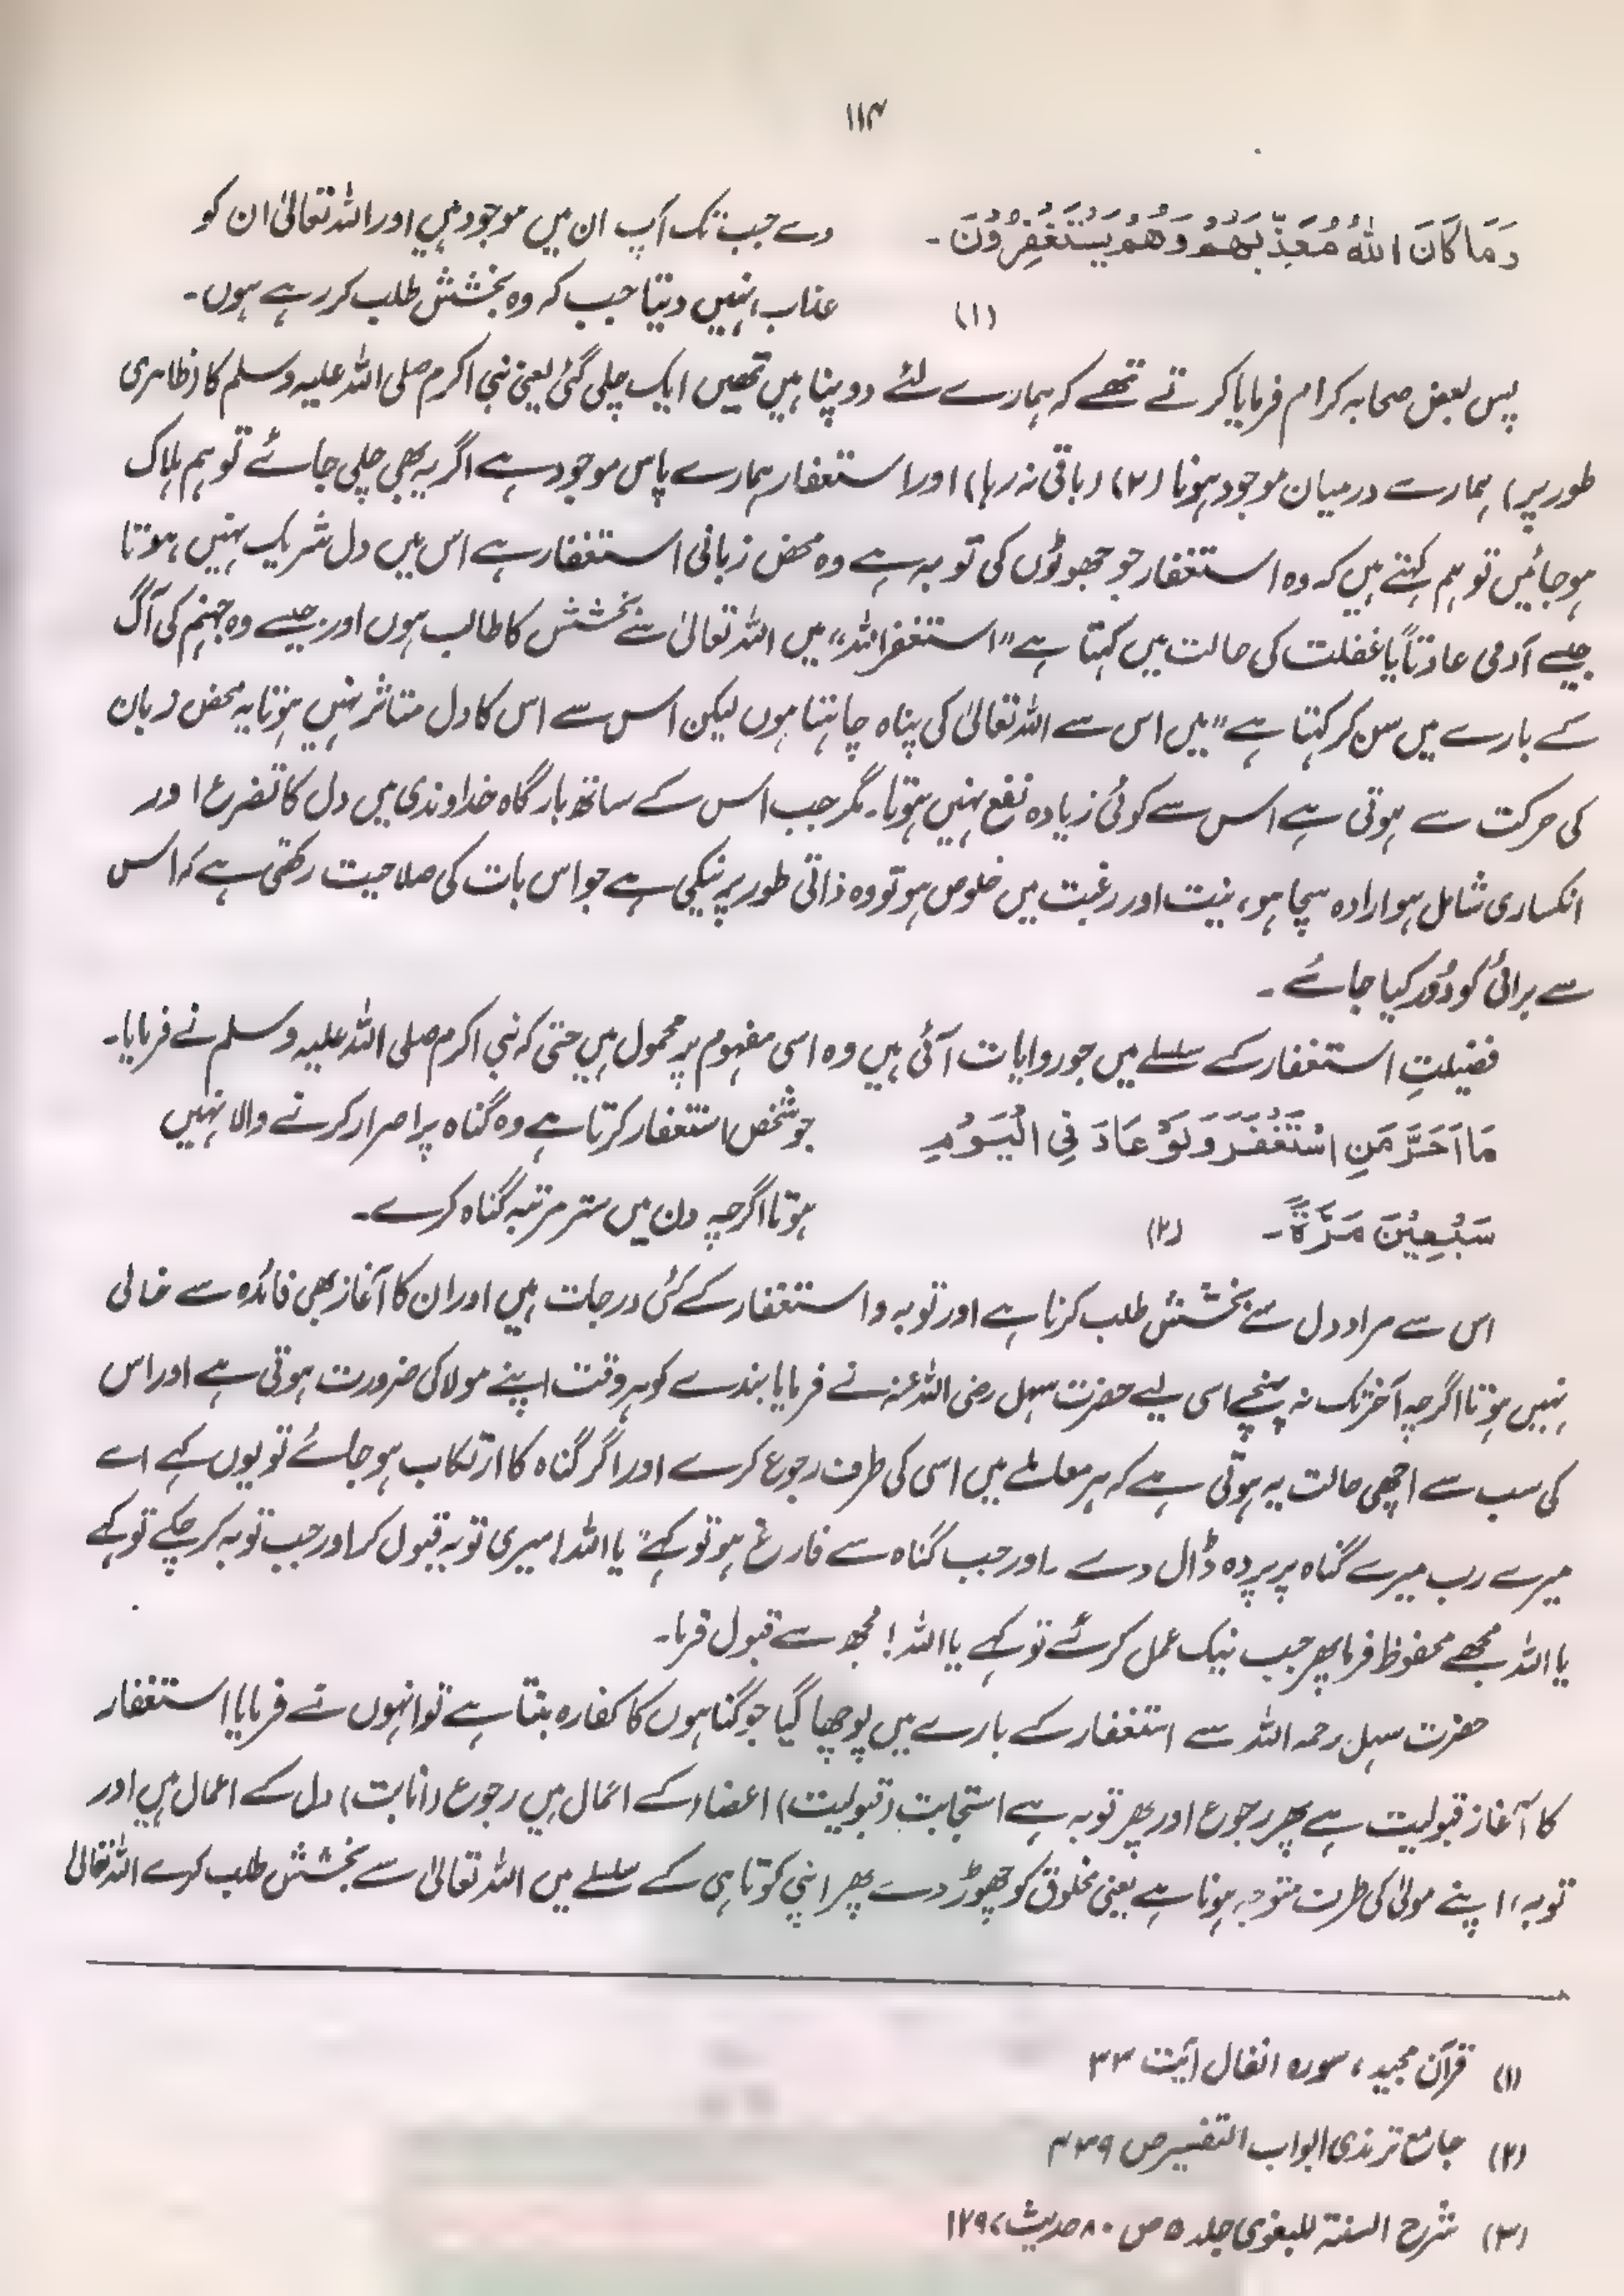 ۱۱۴
وَمَا كَانَ اللهُ مُعَذِّبَهُمْ وَهُمْ يَسْتَغْفِرُوْنَ۔
(۱)
دے جب تک آپ ان میں موجود ہیں اور اللہ تعالیٰ ان کو
عذاب نہیں دیتا جب کہ وہ بخشش طلب کر رہے ہوں۔
پس بعض صحابہ کرام فرمایا کرتے تھے کہ ہمارے لئے دو پناہیں تھیں ایک چلی گئی یعنی نبی اکرم صلی اللہ علیہ وسلم کا (ظاہری
طور پر) ہمارے درمیان موجود ہونا (۲) (باقی نہ رہا) اور استغفار ہمارے پاس موجود ہے اگر یہ بھی چلی جائے تو ہم ہلاک
ہو جائیں تو ہم کہتے ہیں کہ وہ استغفار جو جھوٹوں کی توبہ ہے وہ محض زبانی استغفار ہے اس میں دل شریک نہیں ہوتا
جیسے آدمی عادتاً یا غفلت کی حالت میں کہتا ہے "استغفر اللہ" میں اللہ تعالیٰ سے بخشش کا طالب ہوں اور جیسے وہ جہنم کی آگ
کے بارے میں سن کر کہتا ہے "میں اس سے اللہ تعالیٰ کی پناہ چاہتا ہوں لیکن اس سے اس کا دل متاثر نہیں ہوتا یہ محض زبان
کی حرکت سے ہوتی ہے اس سے کوئی زیادہ نفع نہیں ہوتا۔ مگر جب اس کے ساتھ بارگاہ خداوندی میں دل کا تضرع اور
انکساری شامل ہو ارادہ سچا ہو، نیت اور رغبت میں خلوص ہو تو وہ ذاتی طور پر نیکی ہے جو اس بات کی صلاحیت رکھتی ہے کہ اس
سے برائی کو دُور کیا جائے۔
فضیلتِ استغفار کے سلسلے میں جو روایات آئی ہیں وہ اسی مفہوم پر محمول ہیں حتی کہ نبی اکرم صلی اللہ علیہ وسلم نے فرمایا۔
مَا اَصَرَّ مَنِ اسْتَغْفَرَ وَلَوْ عَادَ فِي الْيَوْمِ
سَبْعِيْنَ مَرَّةً۔ (۲)
جو شخص استغفار کرتا ہے وہ گناہ پر اصرار کرنے والا نہیں
ہوتا اگرچہ دن میں ستر مرتبہ گناہ کرے۔
اس سے مراد دل سے بخشش طلب کرنا ہے اور توبہ و استغفار کے کئی درجات ہیں اور ان کا آغاز بھی فائدہ سے خالی
نہیں ہوتا اگرچہ آخر تک نہ پہنچے اسی لیے حضرت سہل رضی اللہ عنہ نے فرمایا بندے کو ہر وقت اپنے مولا کی ضرورت ہوتی ہے اور اس
کی سب سے اچھی حالت یہ ہوتی ہے کہ ہر معاملے میں اسی کی طرف رجوع کرے اور اگر گناہ کا ارتکاب ہو جائے تو یوں کہے اے
میرے رب میرے گناہ پر پردہ ڈال دے۔ اور جب گناہ سے فارغ ہو تو کہے" یا اللہ! میری توبہ قبول کر اور جب توبہ کر چکے تو کہے
یا اللہ مجھے محفوظ فرما پھر جب نیک عمل کرے تو کہے یا اللہ! مجھ سے قبول فرما۔
حضرت سہل رحمہ اللہ سے استغفار کے بارے میں پوچھا گیا جو گناہوں کا کفارہ بنتا ہے تو انہوں نے فرمایا استغفار
کا آغاز قبولیت ہے پھر رجوع اور پھر توبہ ہے استجابت (قبولیت) اعضاء کے اعمال ہیں رجوع (انابت) دل کے اعمال ہیں اور
توبہ، اپنے مولیٰ کی طرف متوجہ ہونا ہے یعنی مخلوق کو چھوڑ دے پھر اپنی کوتاہی کے سلسلے میں اللہ تعالیٰ سے بخشش طلب کرے اللہ تعالیٰ
(۱) قرآن مجید، سورہ انفال آیت ۳۳
(۲) جامع ترمذی ابواب التفسیر ص ۴۳۹
(۳) شرح السنۃ للبغوی جلد ۵ ص ۸۰ حدیث ۱۲۹۷